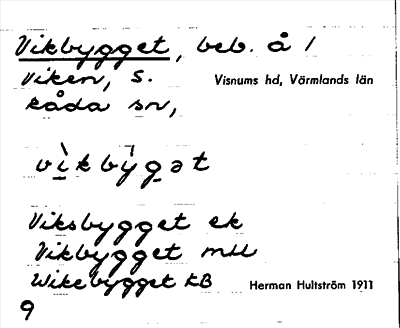 Vikbygget, beb. å 1
Viken, S. Visnums hd, Värmlands län
Råda sn,
vìkby̍gət
Viksbygget ek
Vikbygget mu
Wikebygget KB Herman Hultström 1911
9